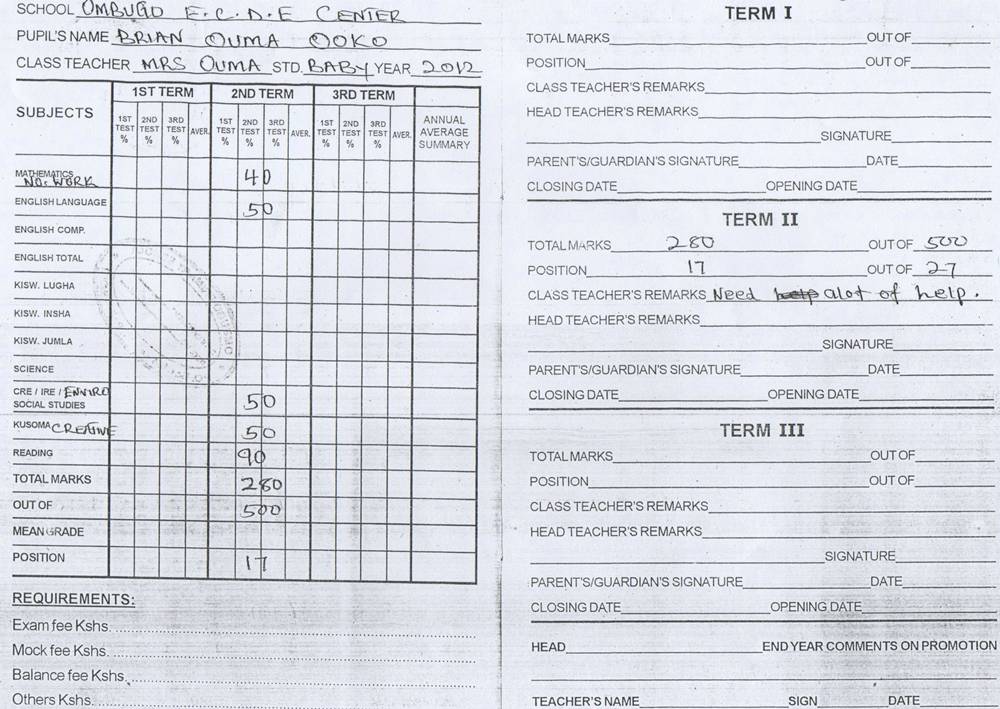 SCHOOL OMBUGO E.C.D.E CENTER
PUPIL'S NAME BRIAN OUMA OOKO
CLASS TEACHER MRS OUMA STD. BABY YEAR 2012
SUBJECTS 1ST TERM 2ND TERM 3RD TERM
1ST TEST % 2ND TEST % 3RD TEST % AVER. 1ST TEST % 2ND TEST % 3RD TEST % AVER. 1ST TEST % 2ND TEST % 3RD TEST % AVER. ANNUAL AVERAGE SUMMARY
MATHEMATICS NO. WORK 40
ENGLISH LANGUAGE 50
ENGLISH COMP.
ENGLISH TOTAL
KISW. LUGHA
KISW. INSHA
KISW. JUMLA
SCIENCE
CRE / IRE / ENVIRO
SOCIAL STUDIES 50
KUSOMA CREATIVE 50
READING 90
TOTAL MARKS 280
OUT OF 500
MEAN GRADE
POSITION 17
REQUIREMENTS:
Exam fee Kshs.
Mock fee Kshs.
Balance fee Kshs.
Others Kshs.
TERM I
TOTAL MARKS OUT OF
POSITION OUT OF
CLASS TEACHER'S REMARKS
HEAD TEACHER'S REMARKS
SIGNATURE
PARENT'S/GUARDIAN'S SIGNATURE DATE
CLOSING DATE OPENING DATE
TERM II
TOTAL MARKS 280 OUT OF 500
POSITION 17 OUT OF 27
CLASS TEACHER'S REMARKS Need help alot of help.
HEAD TEACHER'S REMARKS
SIGNATURE
PARENT'S/GUARDIAN'S SIGNATURE DATE
CLOSING DATE OPENING DATE
TERM III
TOTAL MARKS OUT OF
POSITION OUT OF
CLASS TEACHER'S REMARKS
HEAD TEACHER'S REMARKS
SIGNATURE
PARENT'S/GUARDIAN'S SIGNATURE DATE
CLOSING DATE OPENING DATE
HEAD END YEAR COMMENTS ON PROMOTION
TEACHER'S NAME SIGN DATE